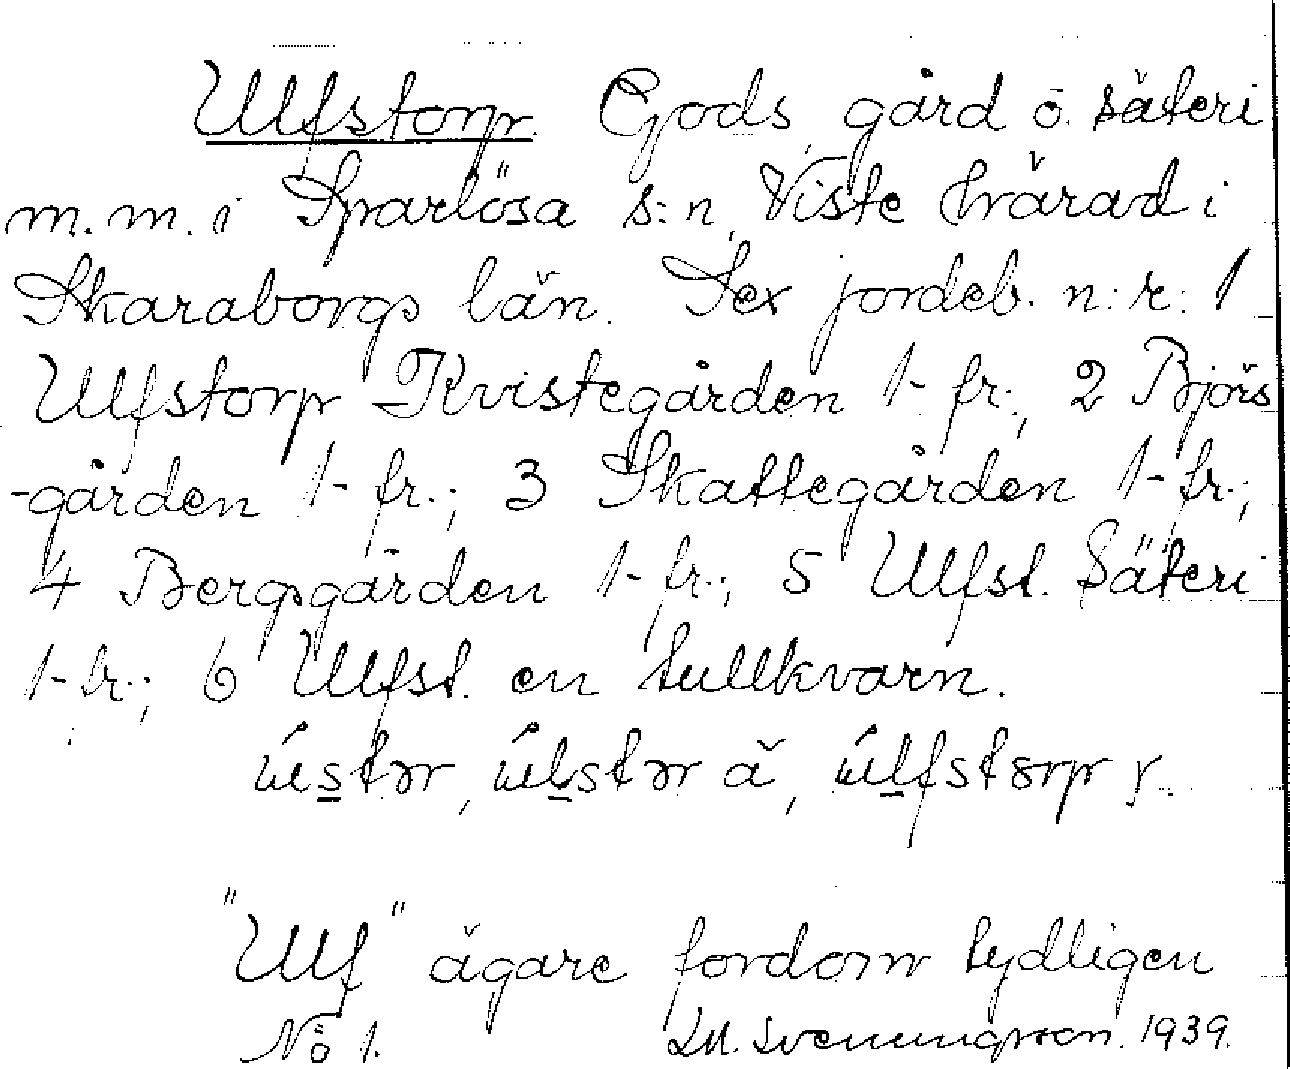 Ulfstorp. Gods, gård o. säteri
m.m. i Sparlösa s:n, Viste härad i
Skaraborgs län. Sex jordeb. n:r: 1
Ulfstorp Kvistegården 1- fr.; 2 Björs
-gården 1- fr.; 3 Skattegården 1- fr.;
4 Bergsgården 1- fr.; 5 Ulfst. Säteri
1- fr.; 6 Ulfst. en tullkvarn.
"Ulf" ägare fordom tydligen
No 1. Svenningsson. 1939.